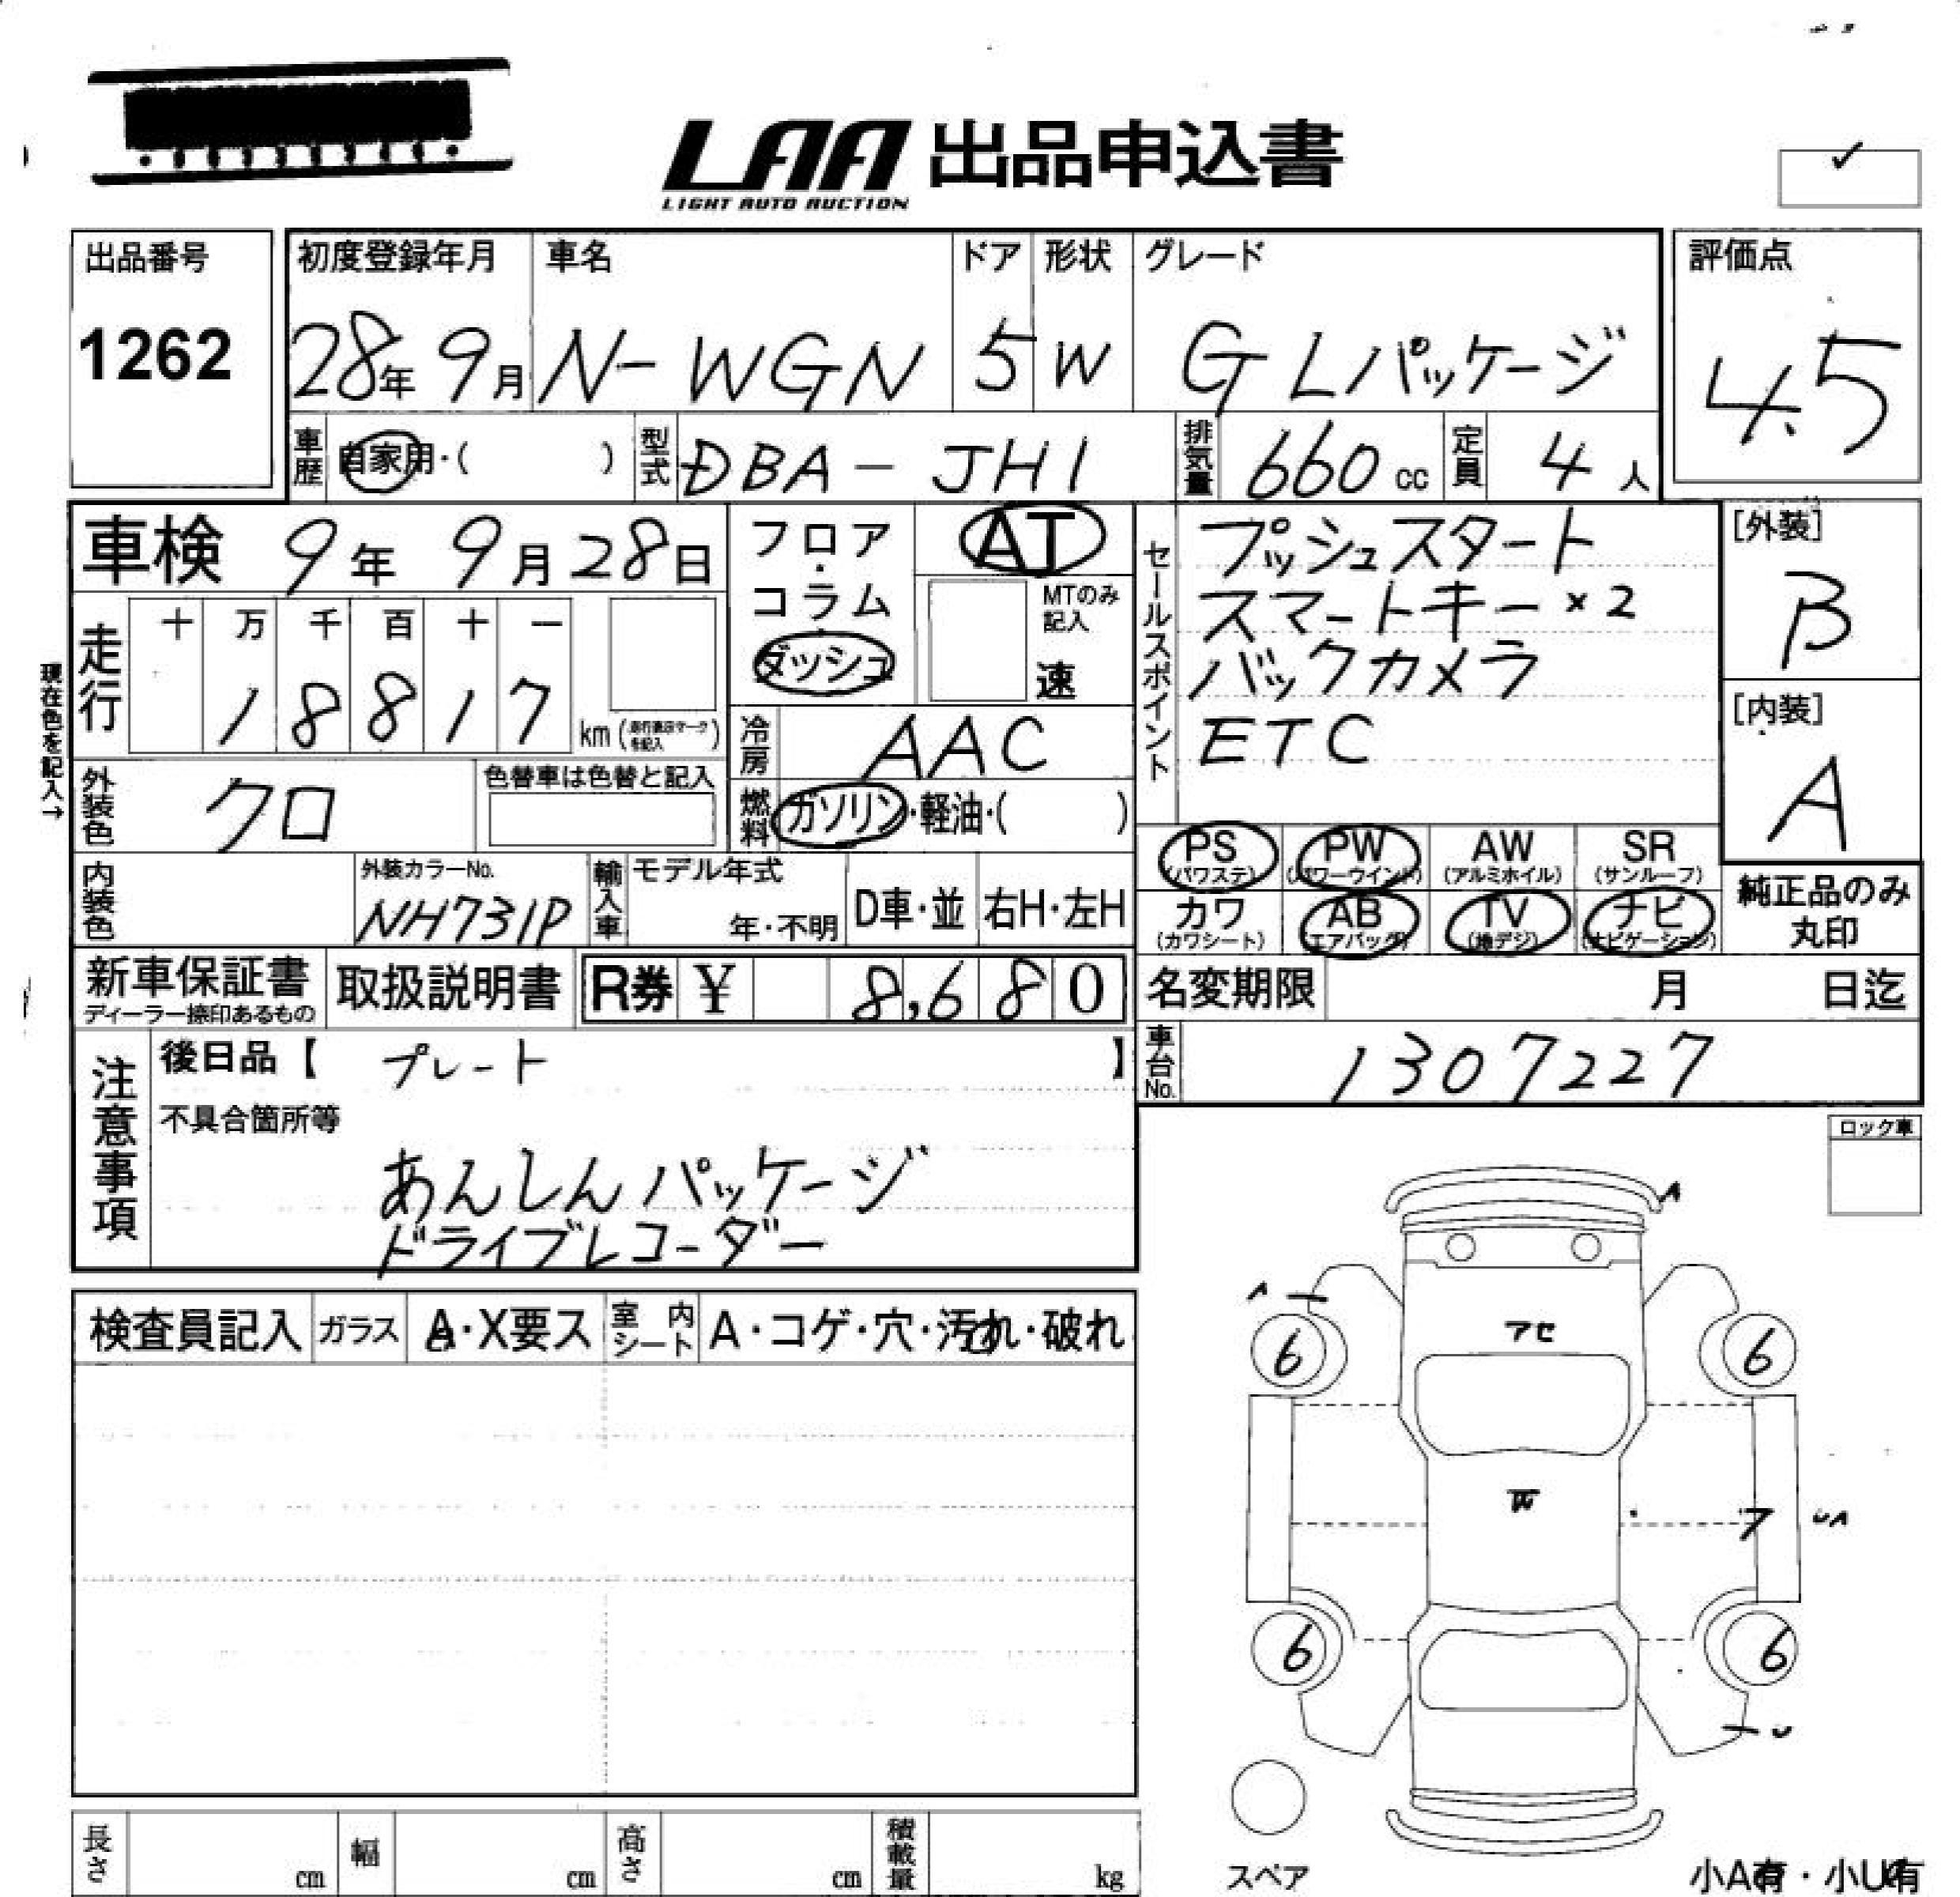 LAA 出品申込書
LIGHT AUTO AUCTION
✓
出品番号
1262
初度登録年月
28年 9月
車名
N-WGN
ドア
5
形状
W
グレード
G Lパッケージ
評価点
4.5
車歴 自家用・( )
型式 DBA-JH1
排気量 660cc
定員 4人
車検 9年 9月 28日
フロア・コラム・ダッシュ
AT
MTのみ記入
速
セールスポイント
プッシュスタート
スマートキー×2
バックカメラ
ETC
[外装]
B
[内装]
A
現在色を記入→
走行
十 万 千 百 十 一
1 8 8 1 7 km
冷房 AAC
外装色 クロ
色替車は色替と記入
燃料 ガソリン・軽油・( )
内装色
外装カラーNo.
NH731P
輸入車
モデル年式
年・不明
D車・並
右H・左H
PS (パワステ)
PW (パワーウインド)
AW (アルミホイル)
SR (サンルーフ)
カワ (カワシート)
AB (エアバッグ)
TV (地デジ)
ナビ (ナビゲーション)
純正品のみ
丸印
新車保証書
ディーラー捺印あるもの
取扱説明書
R券 ¥ 8,680
名変期限 月 日迄
注意事項
後日品【 プレート 】
不具合箇所等
あんしんパッケージ
ドライブレコーダー
車台No. 1307227
ロック車
検査員記入
ガラス A・X要ス
室内シート A・コゲ・穴・汚れ・破れ
A
A
アセ
6
6
W
ア
UA
6
6
U
スペア
小A有・小U有
長さ cm
幅 cm
高さ cm
積載量 kg